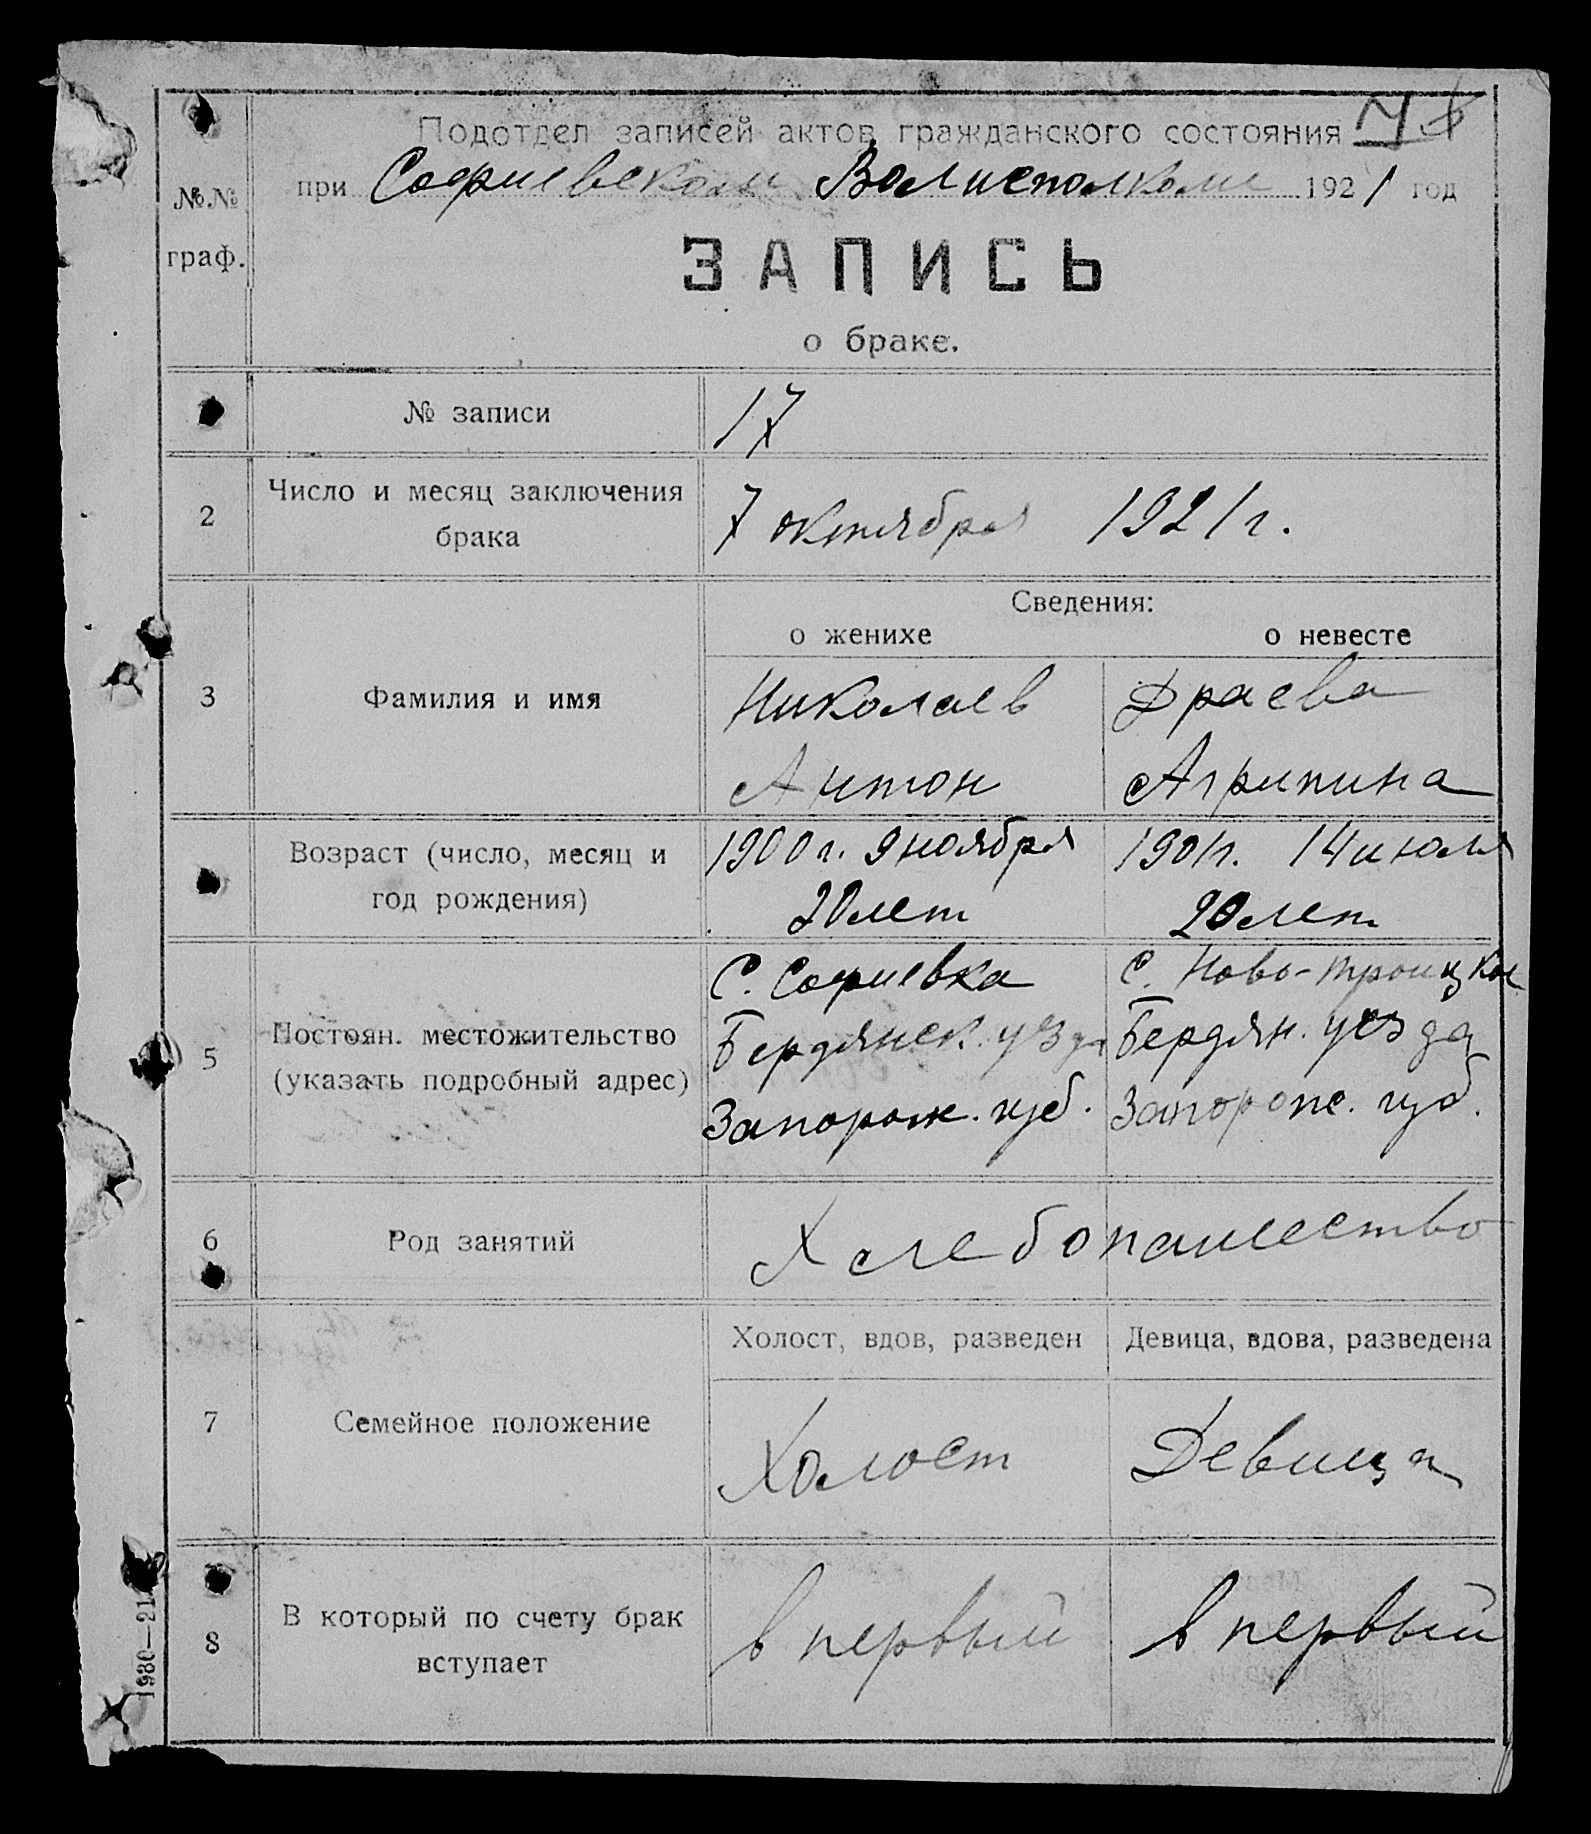 Подотдел записей актов гражданского состояния
при Софиевском Волисполкоме 1921 год
№.№
граф.
ЗАПИСЬ
о браке.
№ записи 17
2 Число и месяц заключения
брака
7 октября 1921 г.
Сведения:
о женихе о невесте
3 Фамилия и имя
Николаев Драева
Антон Агрипина
Возраст (число, месяц и
год рождения)
1900 г. 9 ноября 1901 г. 14 июля
20 лет 20 лет
5 Постоян. местожительство
(указать подробный адрес)
С. Софиевка С. Ново-Троицкое
Бердянск. уезда Бердян. уезда
Запорож. губ. Запорож. губ.
6 Род занятий Хлебопашество
Холост, вдов, разведен Девица, вдова, разведена
7 Семейное положение
Холост Девица
8 В который по счету брак
вступает
в первый в первый